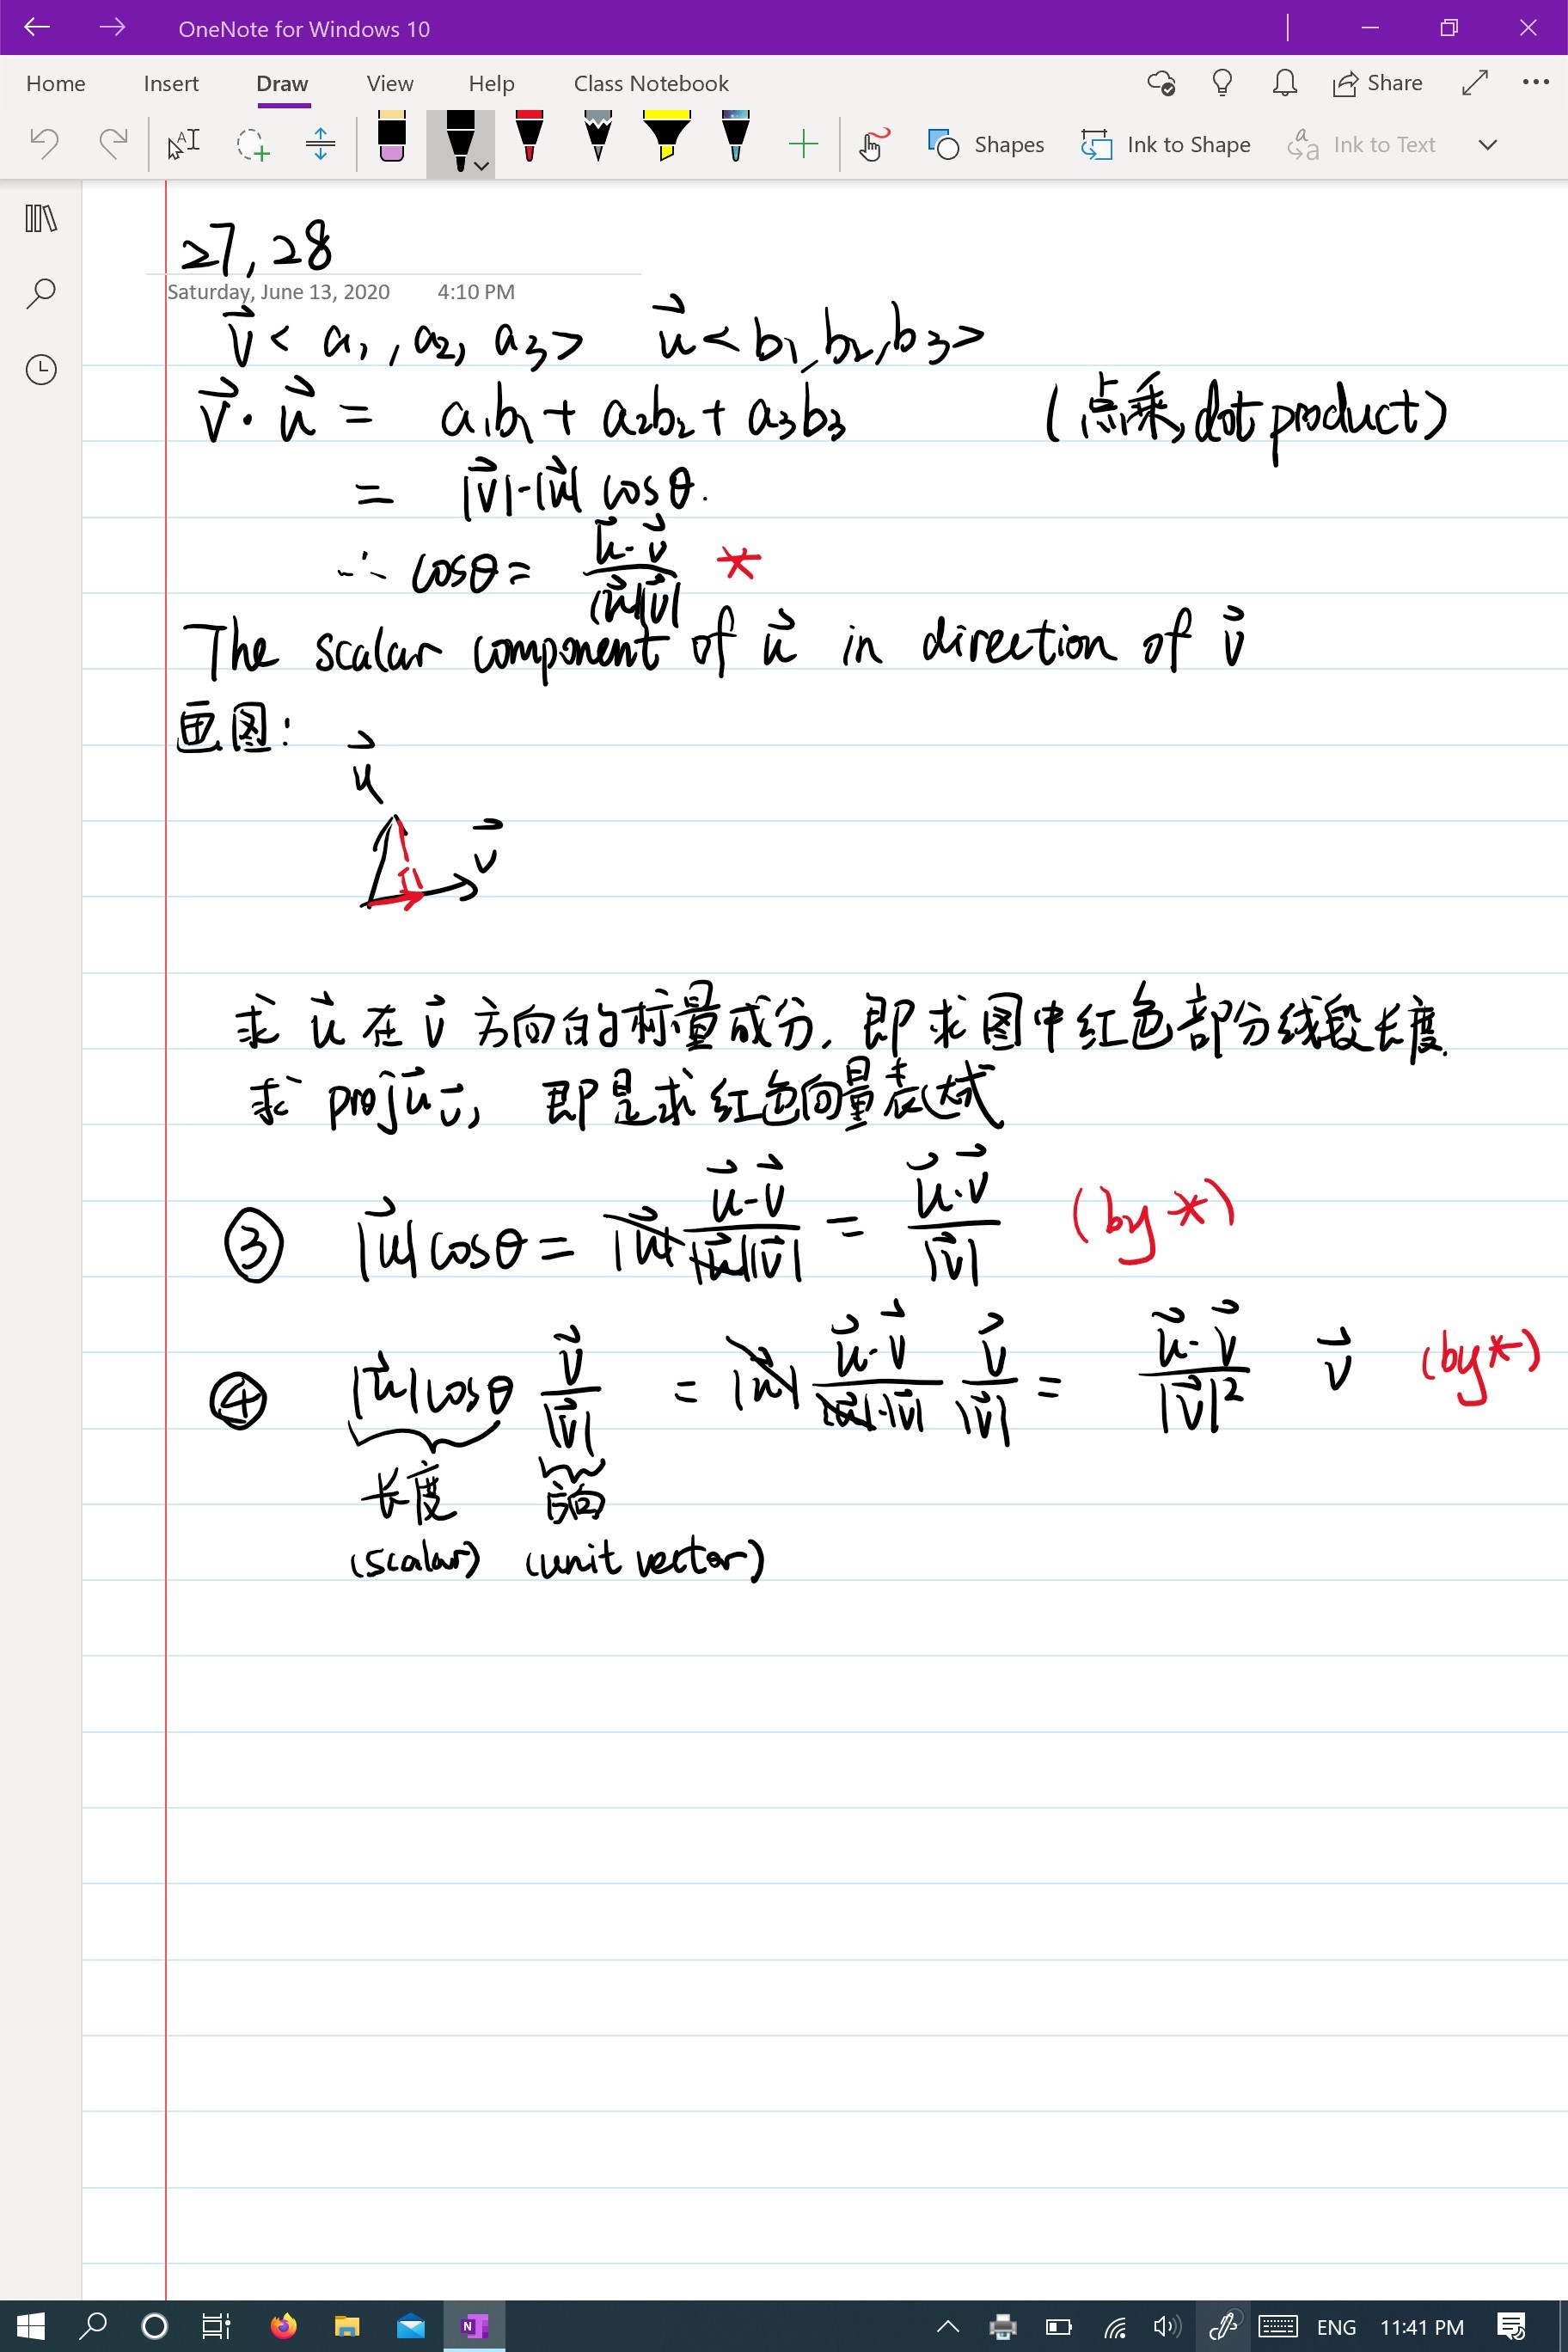 OneNote for Windows 10
Home Insert Draw View Help Class Notebook Share
Shapes Ink to Shape Ink to Text
27, 28
Saturday, June 13, 2020 4:10 PM
v⃗ < a₁, a₂, a₃> u⃗ < b₁, b₂, b₃>
v⃗ · u⃗ = a₁b₁ + a₂b₂ + a₃b₃ (点乘, dot product)
= |v⃗|·|u⃗| cosθ.
∴ cosθ = (u⃗·v⃗)/(|u⃗||v⃗|) *
The scalar component of u⃗ in direction of v⃗
画图:
u⃗
v⃗
求 u⃗ 在 v⃗ 方向的标量成分, 即求图中红色部分线段长度.
求 proj u⃗ v⃗, 即是求红色向量表达式
③ |u⃗| cosθ = |u⃗| (u⃗·v⃗)/(|u⃗||v⃗|) = (u⃗·v⃗)/|v⃗| (by *)
④ |u⃗| cosθ v⃗/|v⃗| = |u⃗| (u⃗·v⃗)/(|u⃗|·|v⃗|) v⃗/|v⃗| = (u⃗·v⃗)/|v⃗|² v⃗ (by *)
长度 方向
(scalar) (unit vector)
ENG 11:41 PM